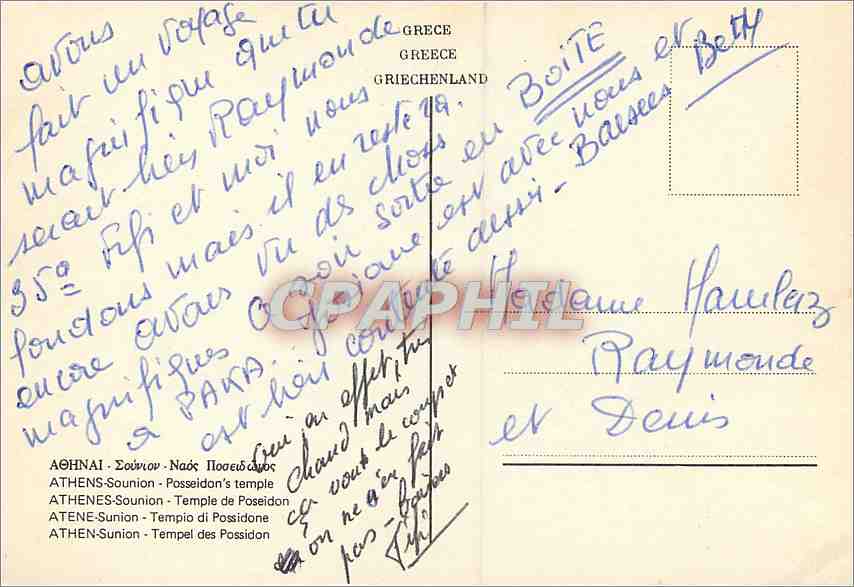 avons
fait un voyage
magnifique quetu
serait bien Raymonde
35ª Fifi et moi nous
fondons mais il en restera.
encore avons vu de choses
magnifiques ce soir sortie en BOITE
a PAKA. Josiane est avec nous et
est bien contente dessui - Baisers Betty
oui en effet, très
chaud mais
ça vaut le coup et
on ne s'en fait
pas - Baisers
Fifi
GRECE
GREECE
GRIECHENLAND
Madame
Raymonde
et Denis
CPAPHIL
ΑΘΗΝΑΙ - Σούνιον - Ναός Ποσειδώνος
ATHENS-Sounion - Posseidon's temple
ATHENES-Sounion - Temple de Poseidon
ATENE-Sunion - Tempio di Possidone
ATHEN-Sunion - Tempel des Possidon